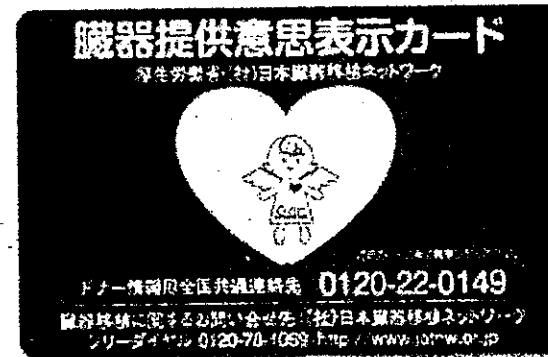 臓器提供意思表示カード
厚生労働省・(社)日本臓器移植ネットワーク
ドナー情報用全国共通連絡先 0120-22-0149
臓器移植に関するお問い合せ先:(社)日本臓器移植ネットワーク
フリーダイヤル 0120-78-1069 http://www.jotnw.or.jp